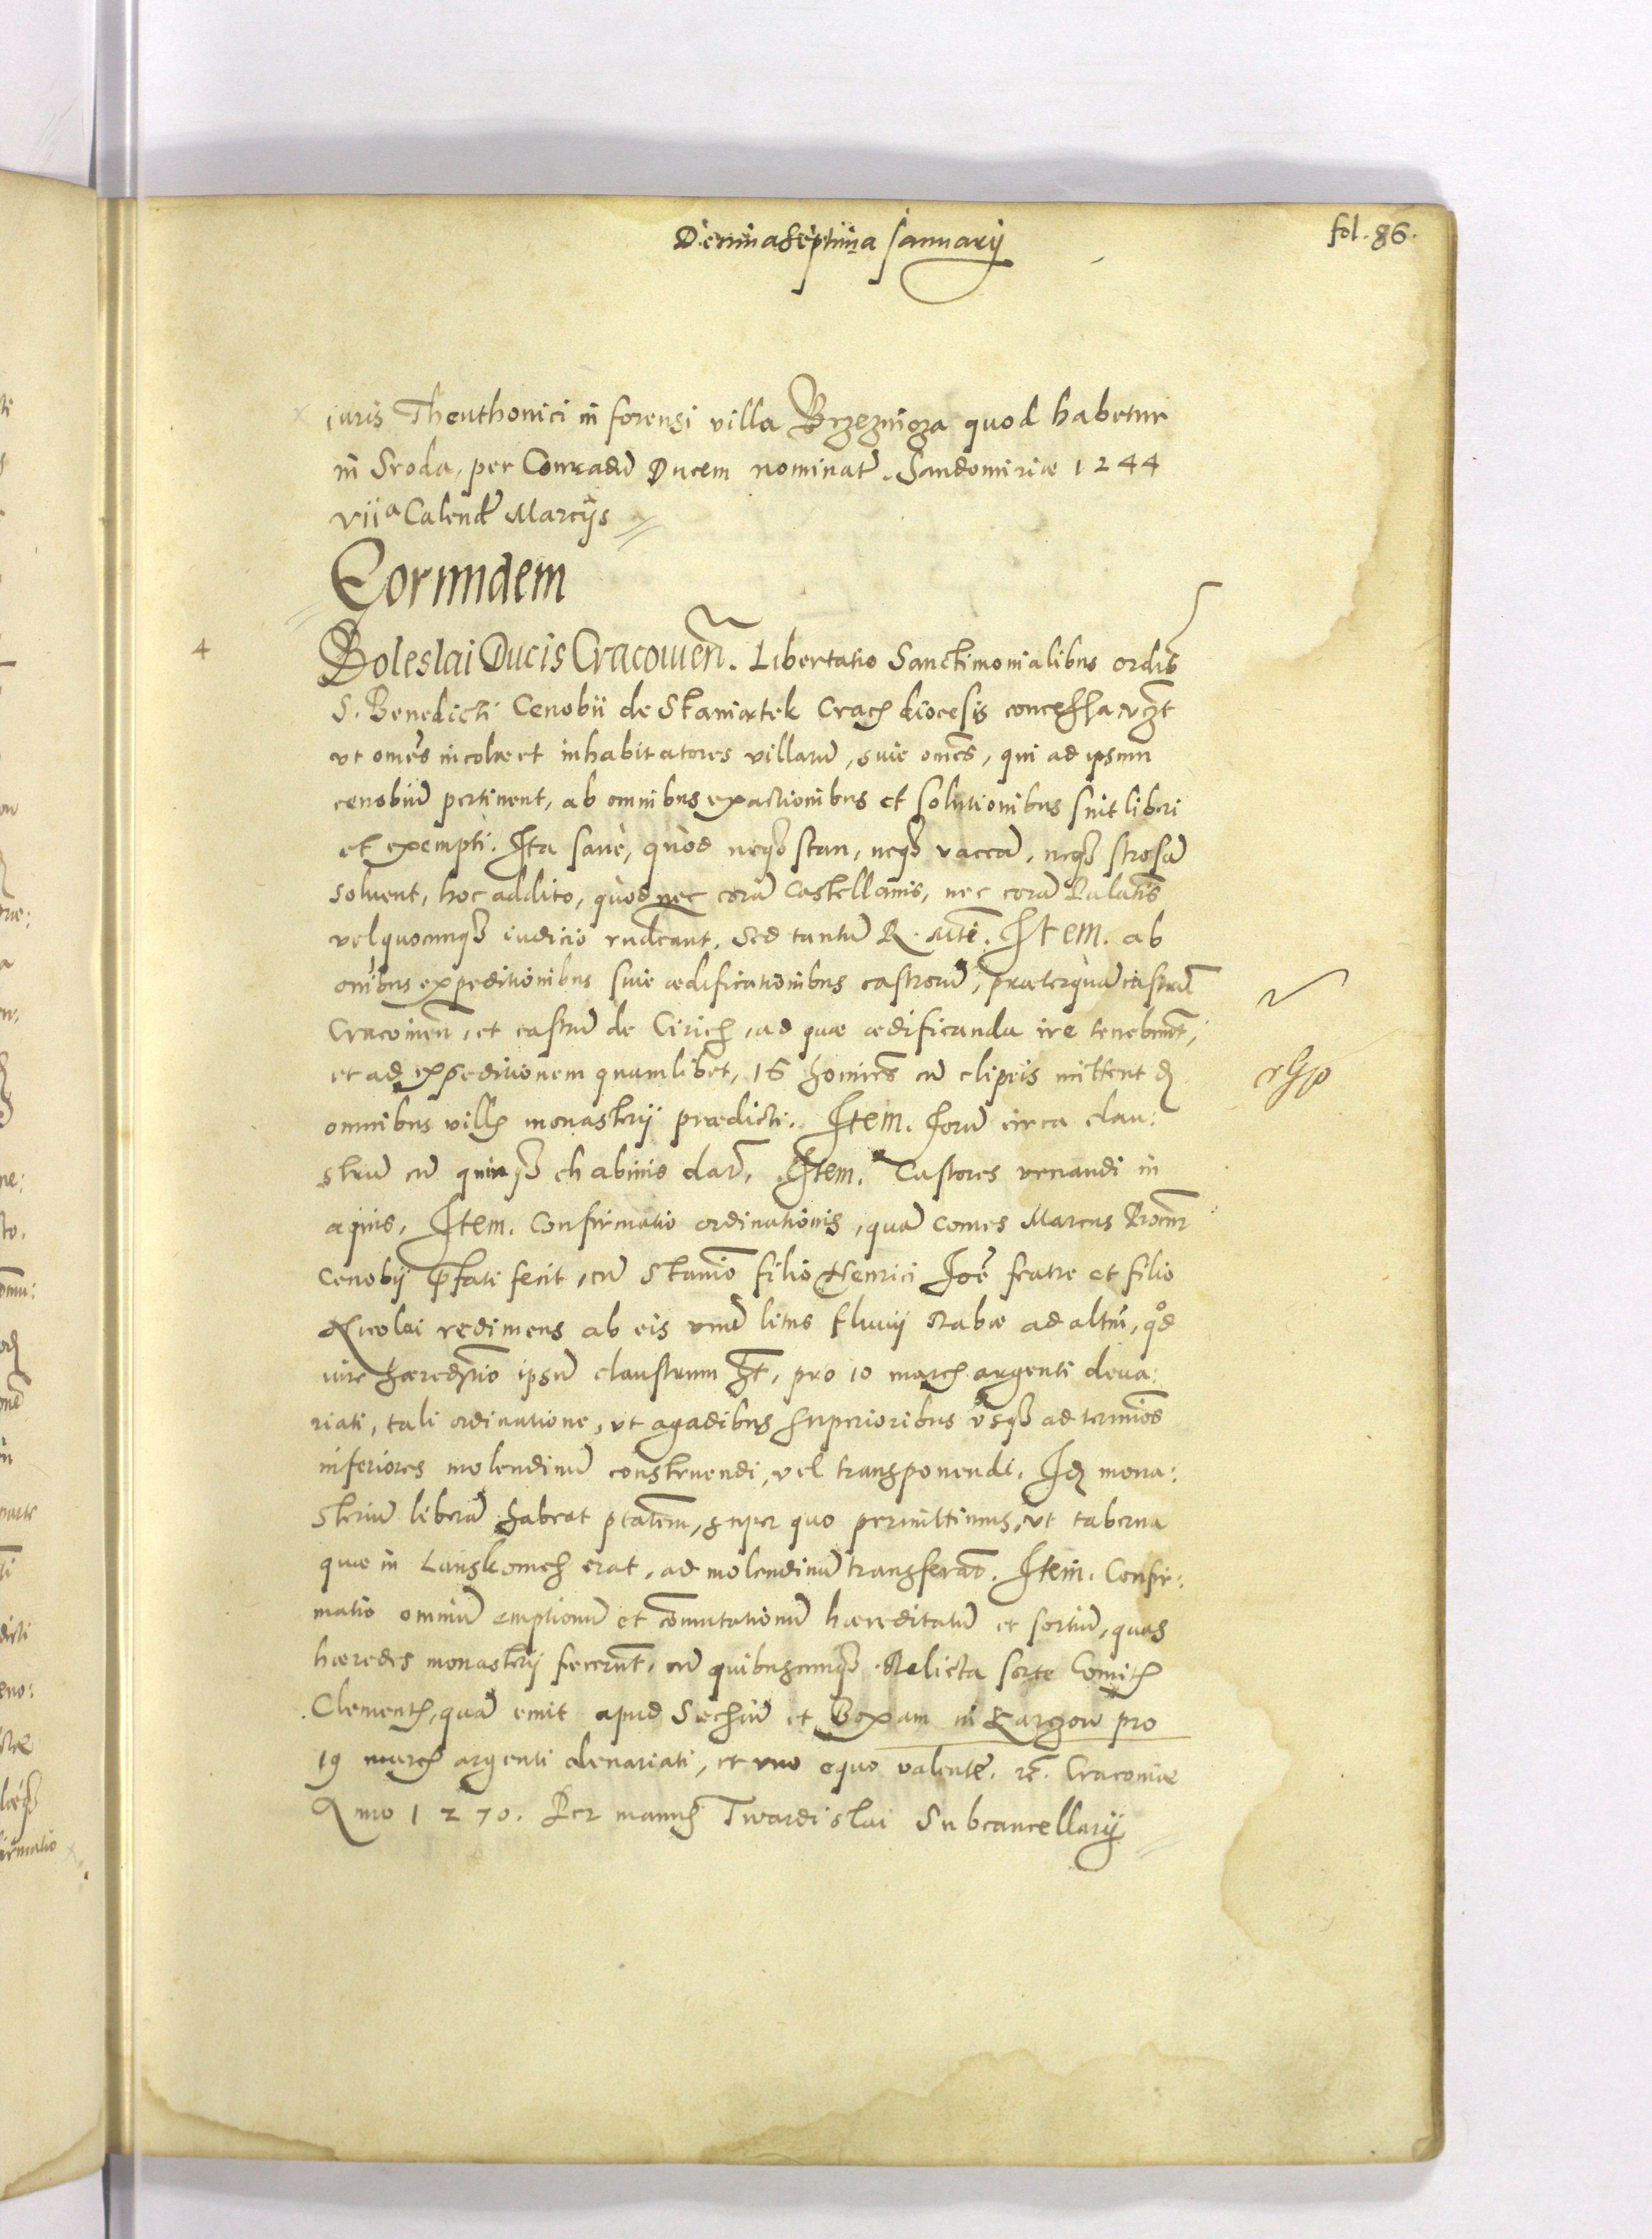 Decimaseptima Januarij
fol. 86.
iuris Theuthonici in forensi villa Brzeznicza quod habetur
in Sroda, per Conradũ Ducem nominatũ. Sandomiriæ 1244
viiª Calend Marcijs
Eorundem
4
Boleslai Ducis Cracouieñ. Libertatio Sanctimonialibus ordis
S. Benedicti Cenobii de Staniatek Crac diocesis concessa, vzt
vt omẽs incolæ et inhabitatores villarũ, siue omẽs, qui ad ipsum
cenobiũ pertinent, ab omnibus exactionibus et solutionibus sint liberi
et exempti. Ita sanè, quòd neqȝ stan, neqȝ vaccã, neqȝ strosã
soluent, hoc addito, quòd nec corã castellanis, nec corã Palatis
vel quocunqȝ iudicio rndeant. Sed tantũ R. Mte. Item. ab
oñibus expeditionibus siue ædificationibus castrorũ, præterquã castrũ
Cracouien, et castrũ de Cirich, ad quæ ædificanda ire tenebunt,
et ad expeditionem quamlibet, 16 homines cũ clipeis mittent d
omnibus vill monasterij prædicti. Item. Forũ circa clau:
strũ cũ quinqȝ chabinis darẽ. Item. Castores venandi in
aquis, Item. Confirmatio ordinationis, quã comes Marcus Procur
Cenobij pfati fecit, cũ Stanio filio Henrici Joẽ fratre et filio
Nicolai redimens ab eis vnũ litus fluuij Rabæ ad altũ, qd
iure hæreditio ipsũ claustrum ht, pro 10 march argenti dena:
riati, tali ordinatione, vt agadibus superioribus vsqȝ ad terminos
inferiores molendinũ construendi, vel transponendi. Id mona:
steriũ liberã habeat ptatem, super quo permittimus, vt taberna
quæ in Lanskomch erat, ad molendinũ transferat. Item. Confir:
matio omniũ emptionũ et cõmutationũ hæreditatũ et sortiũ, quas
hæredes monasterij fecerunt, cũ quibuscunqȝ. Relicta sorte Comit
Clement, quã emit apud Sechũ et Boxam in Kargow pro
19 march argenti denariati, et vno equo valente. re. Cracouiæ
Anno 1270. Per manus Twardislai Subcancellarij